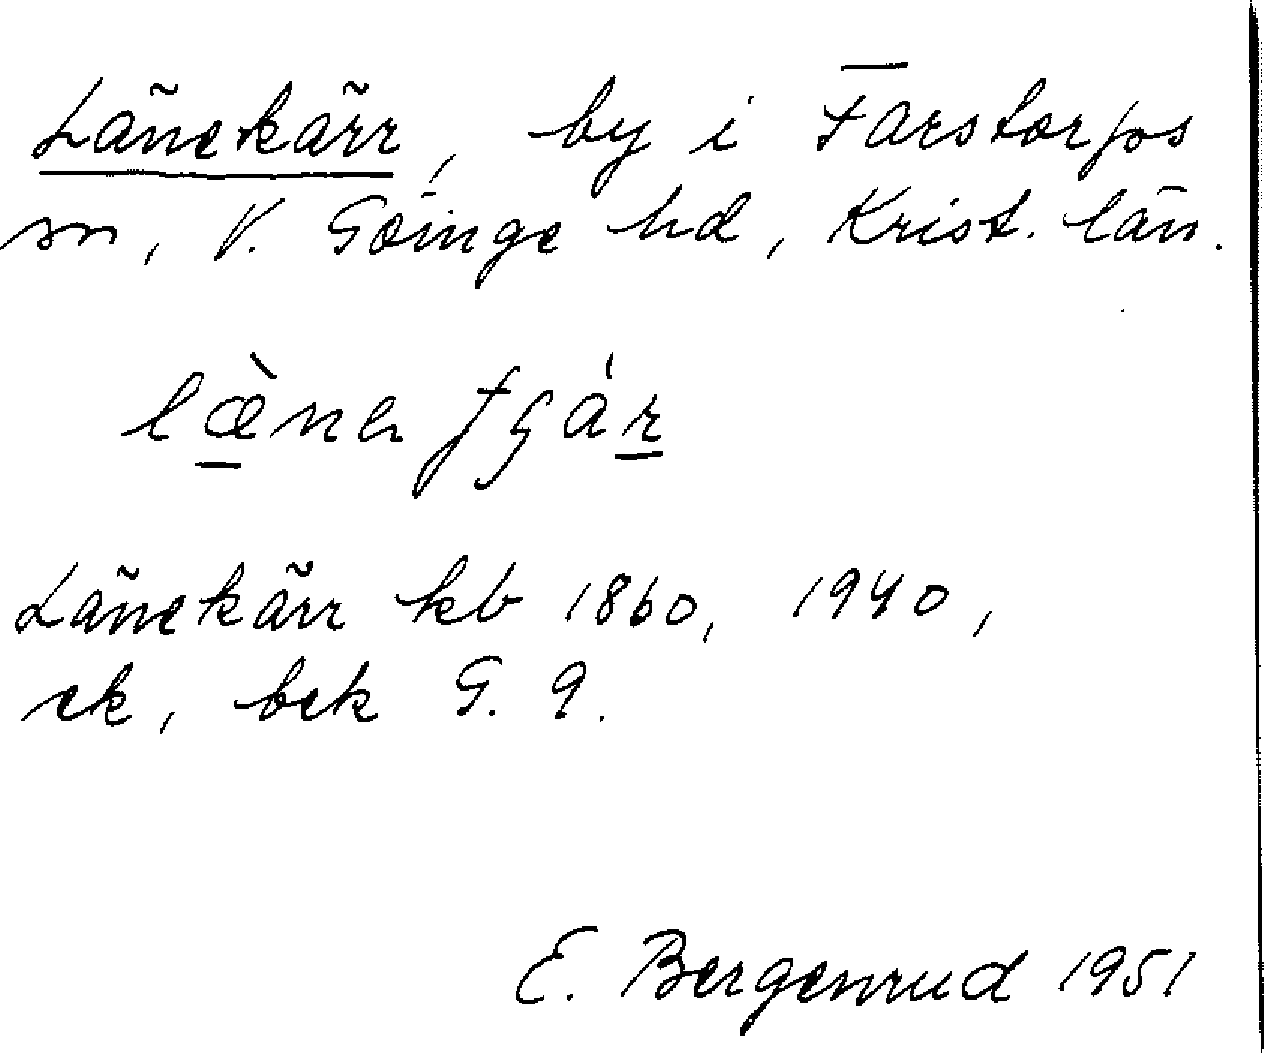 Länekärr, by i Farstorps
sn, V. Göinge hd, Krist. län.
Länekärr kb 1860, 1940,
ek, bek G. 9.
E. Bergenrud 1951